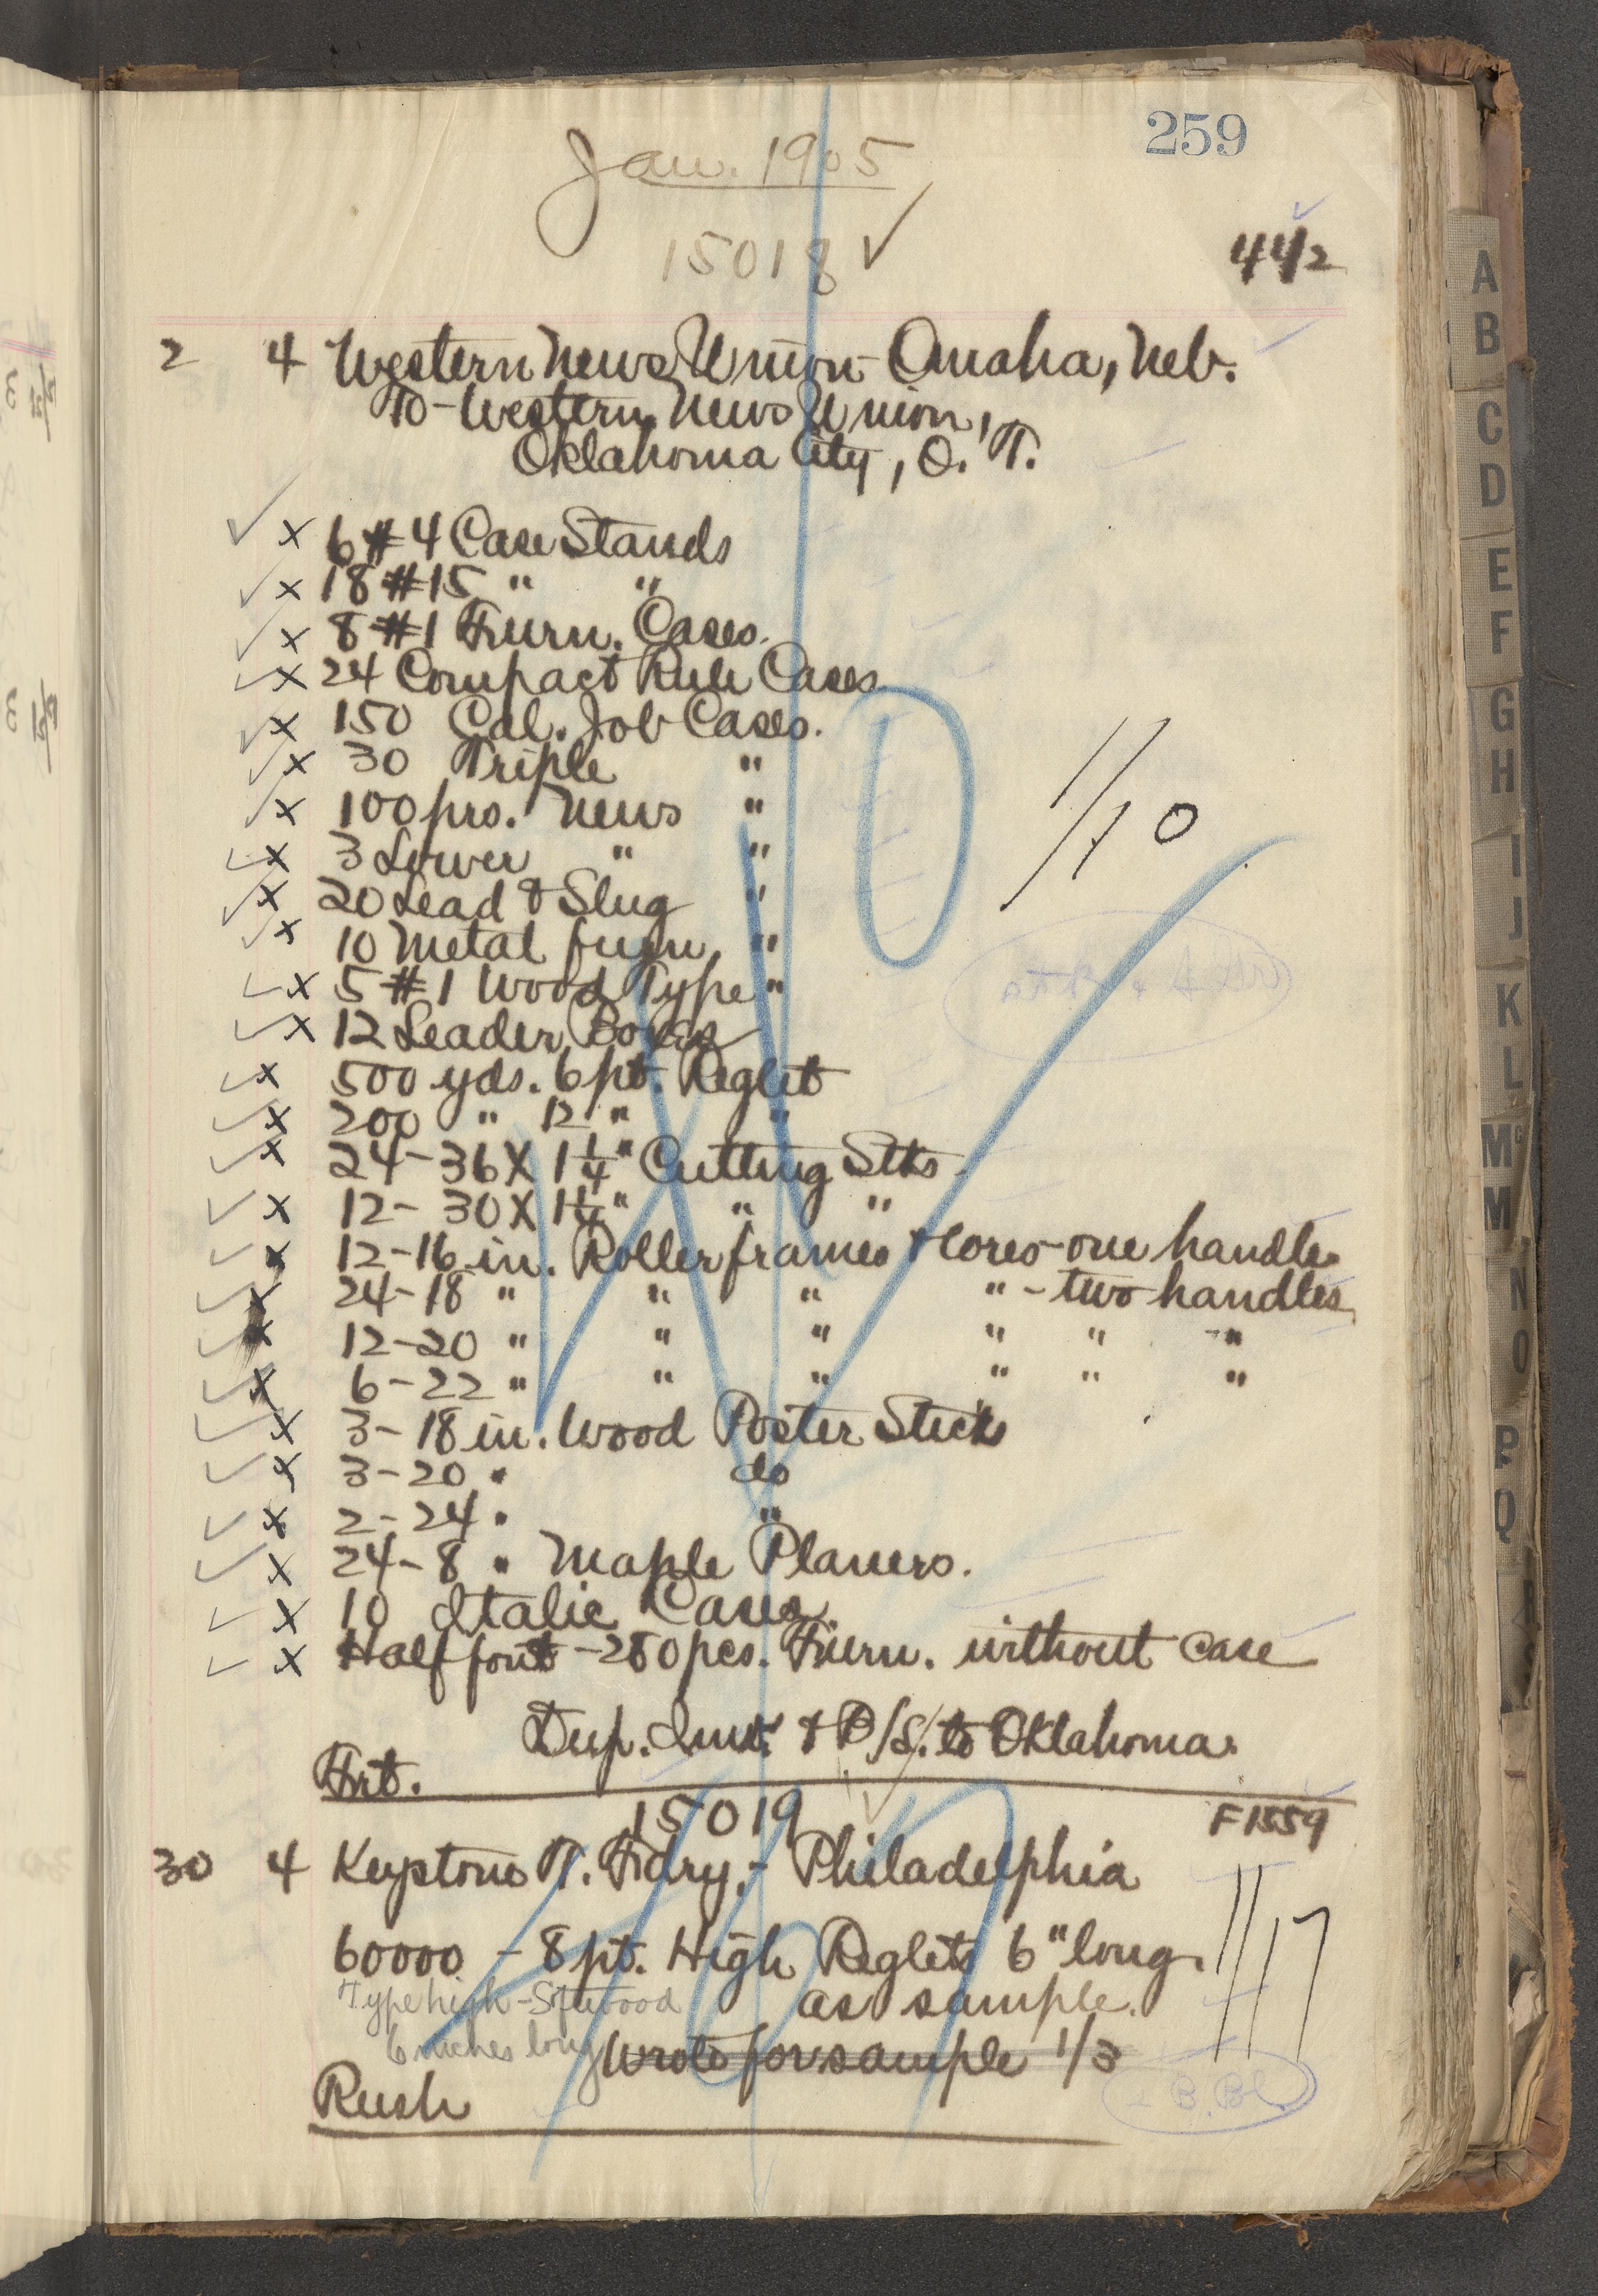 259
Jan. 1905
15018 ✓
44/2
2 4 Western News Union Omaha, Neb.
To - Western News Union,
Oklahoma City, O. T.
✓ x 6 #4 Case Stands
✓ x 18 #15 " "
✓ x 8 #1 Furn. Cases.
✓ x 24 Compact Rule Cases.
✓ x 150 Cal. Job Cases.
✓ x 30 Triple "
✓ x 100 prs. News "
✓ x 3 Lower " "
✓ x 20 Lead & Slug "
✓ x 10 Metal furn. "
✓ x 5 #1 Wood Type "
✓ x 12 Leader Boxes
✓ x 500 yds. 6 pt. Reglet
✓ x 200 " 12 " "
✓ x 24-36 X 1 1/4" Cutting Stks.
✓ x 12-30 X 1 1/4" " "
✓ x 12-16 in. Roller frames & Cores - one handle
✓ x 24-18 " " " " - two handles
✓ x 12-20 " " " " " "
✓ x 6-22 " " " " " "
✓ x 3-18 in. Wood Poster Sticks
✓ x 3-20 " do
✓ x 2-24 " "
✓ x 24-8 " Maple Planers.
✓ x 10 Italic Cases
✓ x Half font - 280 pcs. Furn. without case
1/10
Dup. Inv. & B/S. to Oklahoma.
Frt.
15019
F1559
30 4 Keystone T. Fdry. - Philadelphia
60000 - 8 pt. High Reglets 6" long.
Type high - Softwood as sample.
6 inches long Wrote for sample 1/3
1/17
Rush
A
B
C
D
E
F
G
H
I
J
K
L
Mc
M
N
O
P
Q
R
S